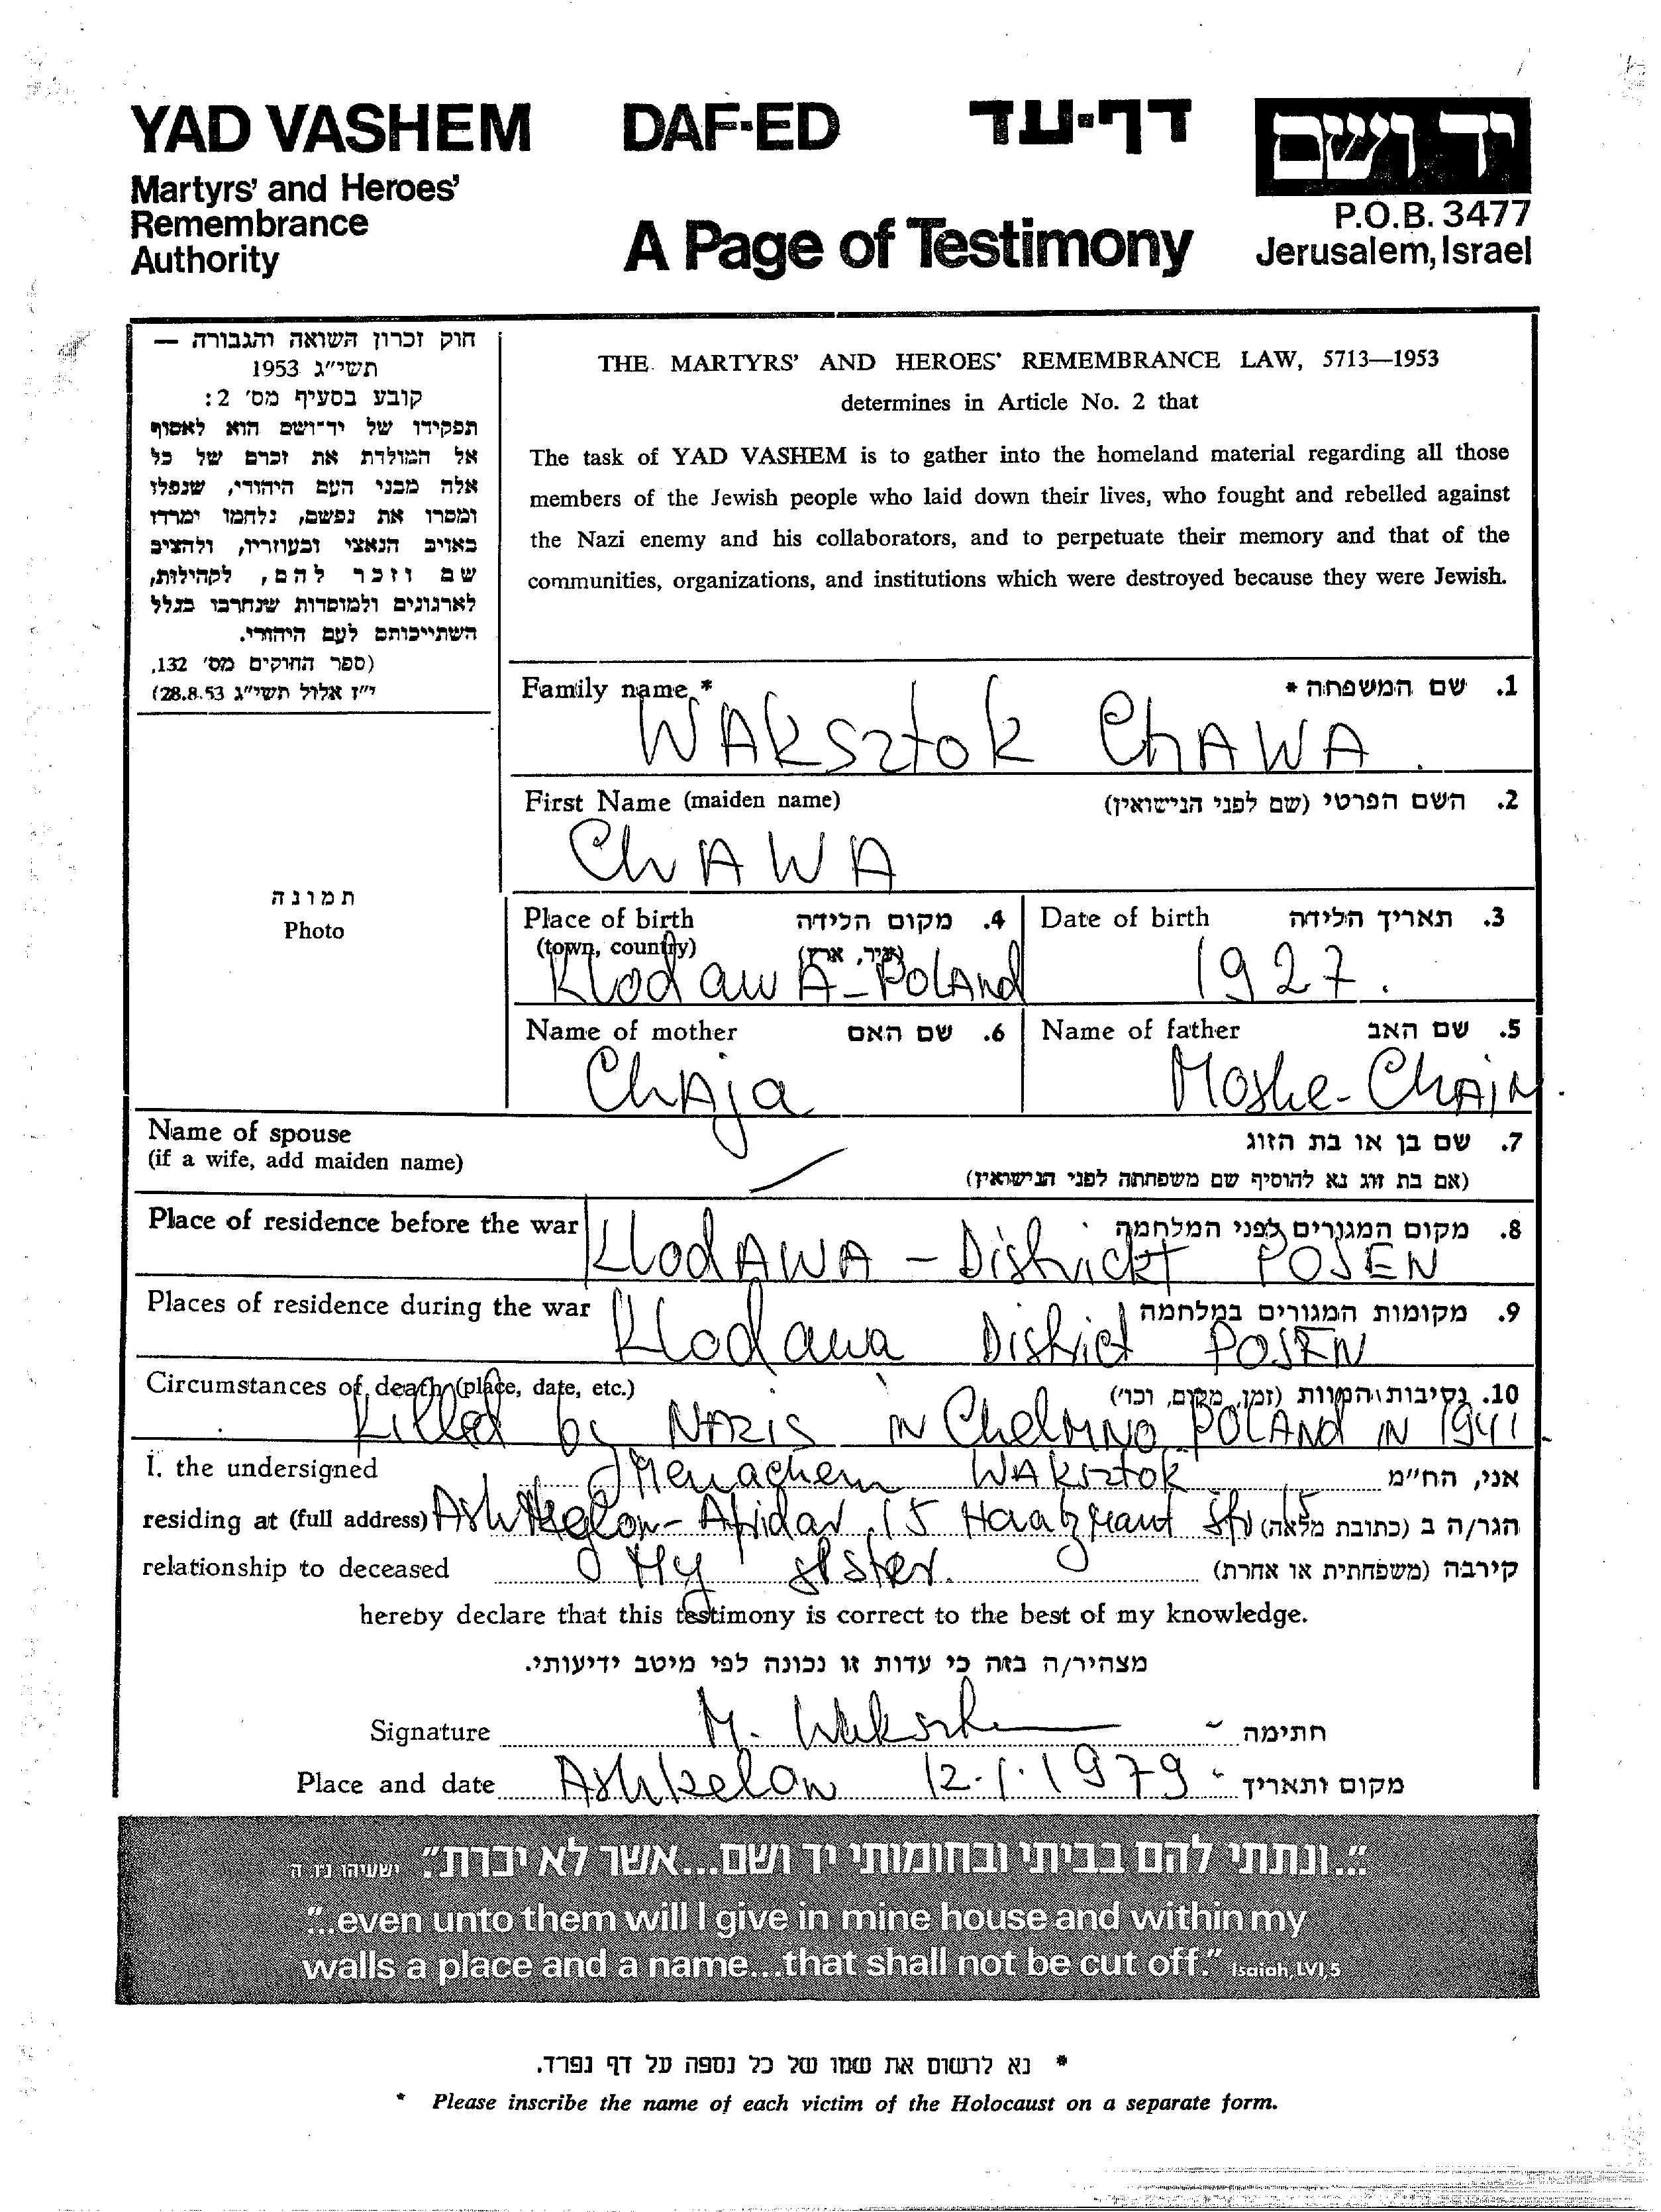 YAD VASHEM DAF-ED דף-עד יד ושם
Martyrs' and Heroes'
Remembrance
Authority
A Page of Testimony
P.O.B. 3477
Jerusalem, Israel
חוק זכרון השואה והגבורה —
תשי"ג 1953
קובע בסעיף מס' 2:
תפקידו של יד-ושם הוא לאסוף
אל המולדת את זכרם של כל
אלה מבני העם היהודי, שנפלו
ומסרו את נפשם, נלחמו ומרדו
באויב הנאצי ובעוזריו, ולהציב
שם וזכר להם, לקהילות,
לארגונים ולמוסדות שנחרבו בגלל
השתייכותם לעם היהודי.
(ספר החוקים מס' 132,
י"ז אלול תשי"ג 28.8.53)
THE MARTYRS' AND HEROES' REMEMBRANCE LAW, 5713—1953
determines in Article No. 2 that
The task of YAD VASHEM is to gather into the homeland material regarding all those
members of the Jewish people who laid down their lives, who fought and rebelled against
the Nazi enemy and his collaborators, and to perpetuate their memory and that of the
communities, organizations, and institutions which were destroyed because they were Jewish.
תמונה
Photo
Family name * 1. שם המשפחה *
WAKSztok ChAWA.
First Name (maiden name) 2. השם הפרטי (שם לפני הנישואין)
ChAWA
Place of birth 4. מקום הלידה
(town, country) (עיר, ארץ)
KlodawA-PoLAnd
Date of birth 3. תאריך הלידה
1927.
Name of mother 6. שם האם
ChAja
Name of father 5. שם האב
Moshe-ChAiM.
Name of spouse 7. שם בן או בת הזוג
(if a wife, add maiden name) (אם בת זוג נא להוסיף שם משפחתה לפני הנישואין)
Place of residence before the war 8. מקום המגורים לפני המלחמה
KlodAWA - Districkt POSEN
Places of residence during the war 9. מקומות המגורים במלחמה
Klodawa District POSEN
Circumstances of death (place, date, etc.) 10. נסיבות המוות (זמן, מקום, וכו')
Killed by NAZIS IN ChelMNO POLANd IN 1941.
I. the undersigned Menachem WAKsztok אני, הח"מ
residing at (full address) Afridar, 15 הגר/ה ב (כתובת מלאה)
relationship to deceased My sister. קירבה (משפחתית או אחרת)
hereby declare that this testimony is correct to the best of my knowledge.
מצהיר/ה בזה כי עדות זו נכונה לפי מיטב ידיעותי.
Signature M. חתימה
Place and date Ashkelon 12.1.1979 מקום ותאריך
"...ונתתי להם בביתי ובחומותי יד ושם...אשר לא יכרת" ישעיהו נו, ה
"...even unto them will I give in mine house and within my
walls a place and a name...that shall not be cut off." Isaiah, LVI,5
* נא לרשום את שמו של כל נספה על דף נפרד.
* Please inscribe the name of each victim of the Holocaust on a separate form.